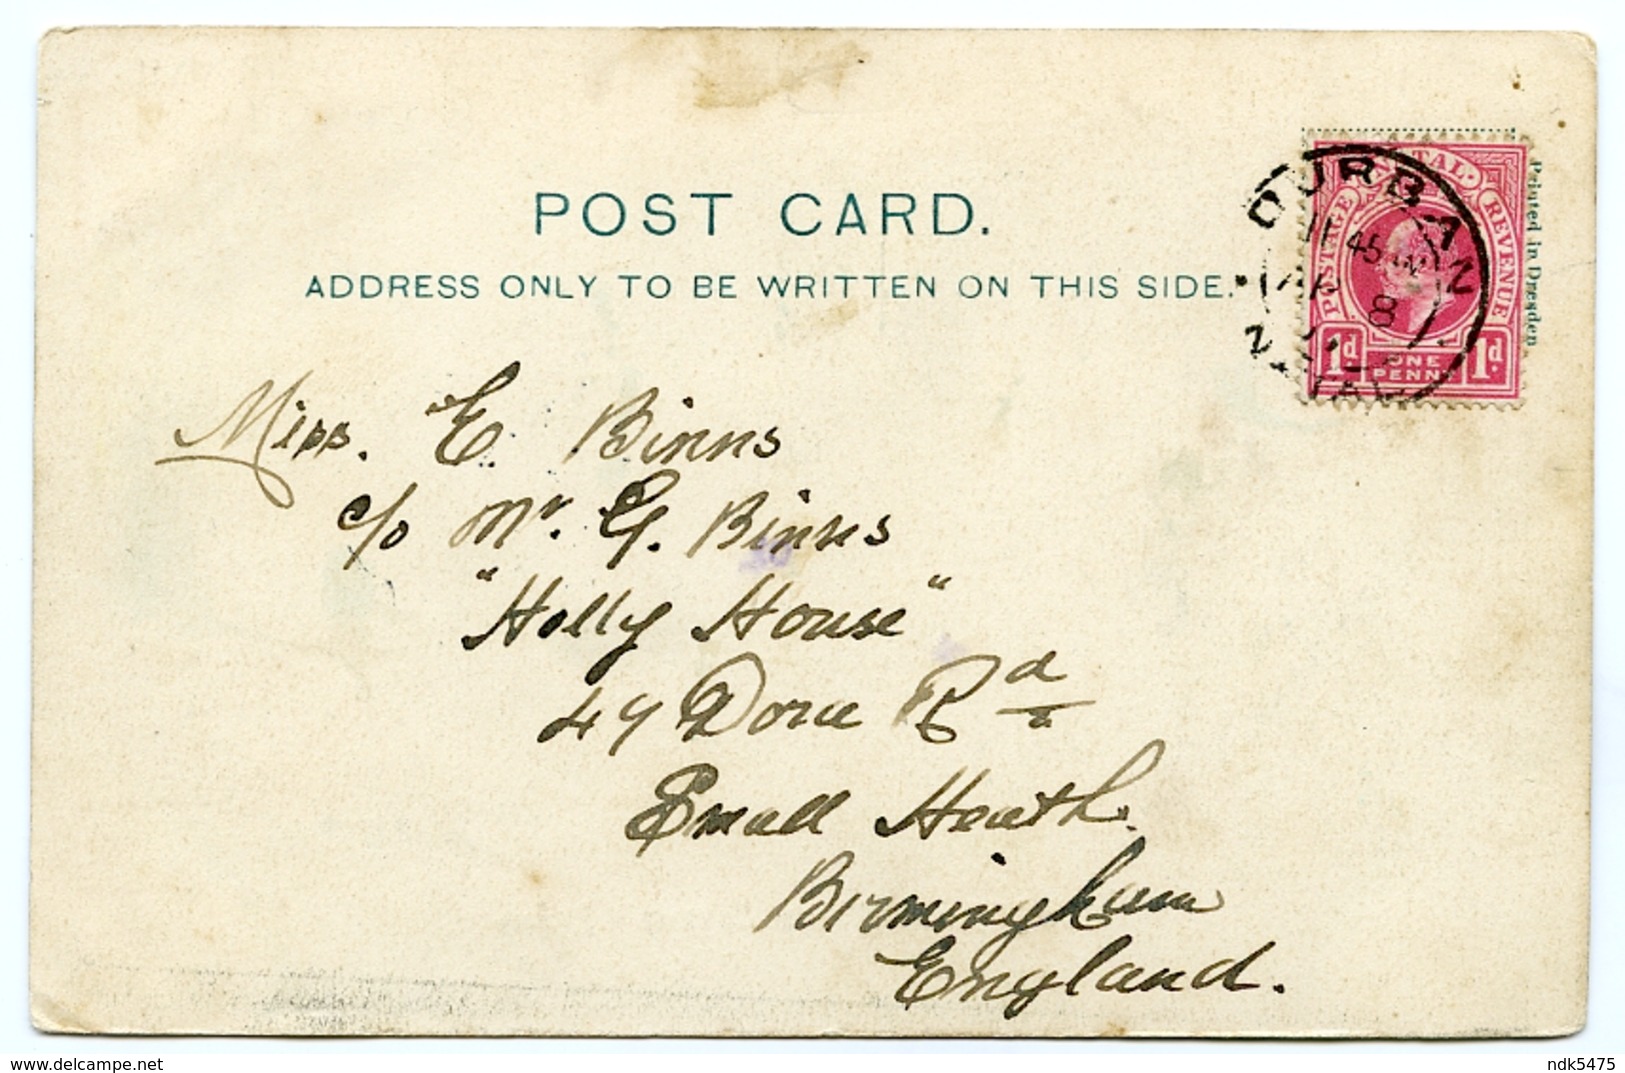 POST CARD.
ADDRESS ONLY TO BE WRITTEN ON THIS SIDE.
NATAL.
POSTAGE
REVENUE
1d
ONE
PENNY
1d
DURBAN
11 45
8
NATAL
Printed in Dresden
Miss. E. Binns
c/o Mr. G. Binns
"Holly House"
47 Dora Rd
Small Heath.
Birmingham
England.
delcampe.net
ndk5475